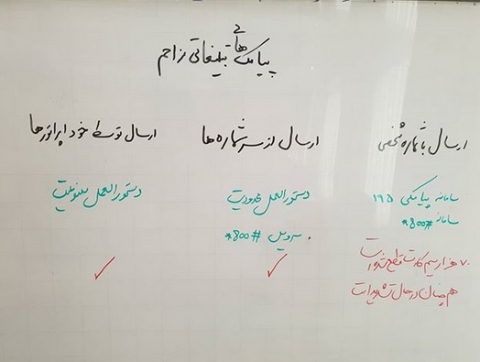 پیامک های تبلیغاتی مزاحم
ارسال با شماره شخصی
سامانه پیامکی ۱۹۵
سامانه #800*
۷۰ هزار سیم کارت قطع شده است
همچنان در حال تشدید است
ارسال از سرشماره ها
دستورالعمل محدودیت
سرویس #800*
ارسال توسط خود اپراتورها
دستورالعمل ممنوعیت